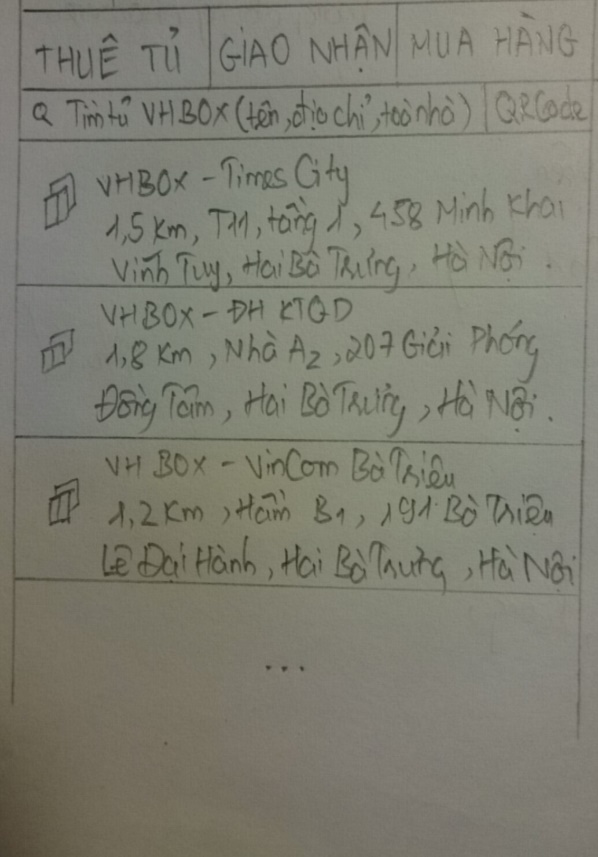 THUÊ TỦ GIAO NHẬN MUA HÀNG
Tìm tủ VHBOX (tên, địa chỉ, toà nhà) QRCode
VHBOX - Times City
1,5 km, T11, tầng 1, 458 Minh Khai
Vĩnh Tuy, Hai Bà Trưng, Hà Nội.
VHBOX - ĐH KTQD
1,8 km, Nhà A2, 207 Giải Phóng
Đồng Tâm, Hai Bà Trưng, Hà Nội.
VHBOX - VinCom Bà Triệu
1,2 km, Hầm B1, 191 Bà Triệu
Lê Đại Hành, Hai Bà Trưng, Hà Nội
...